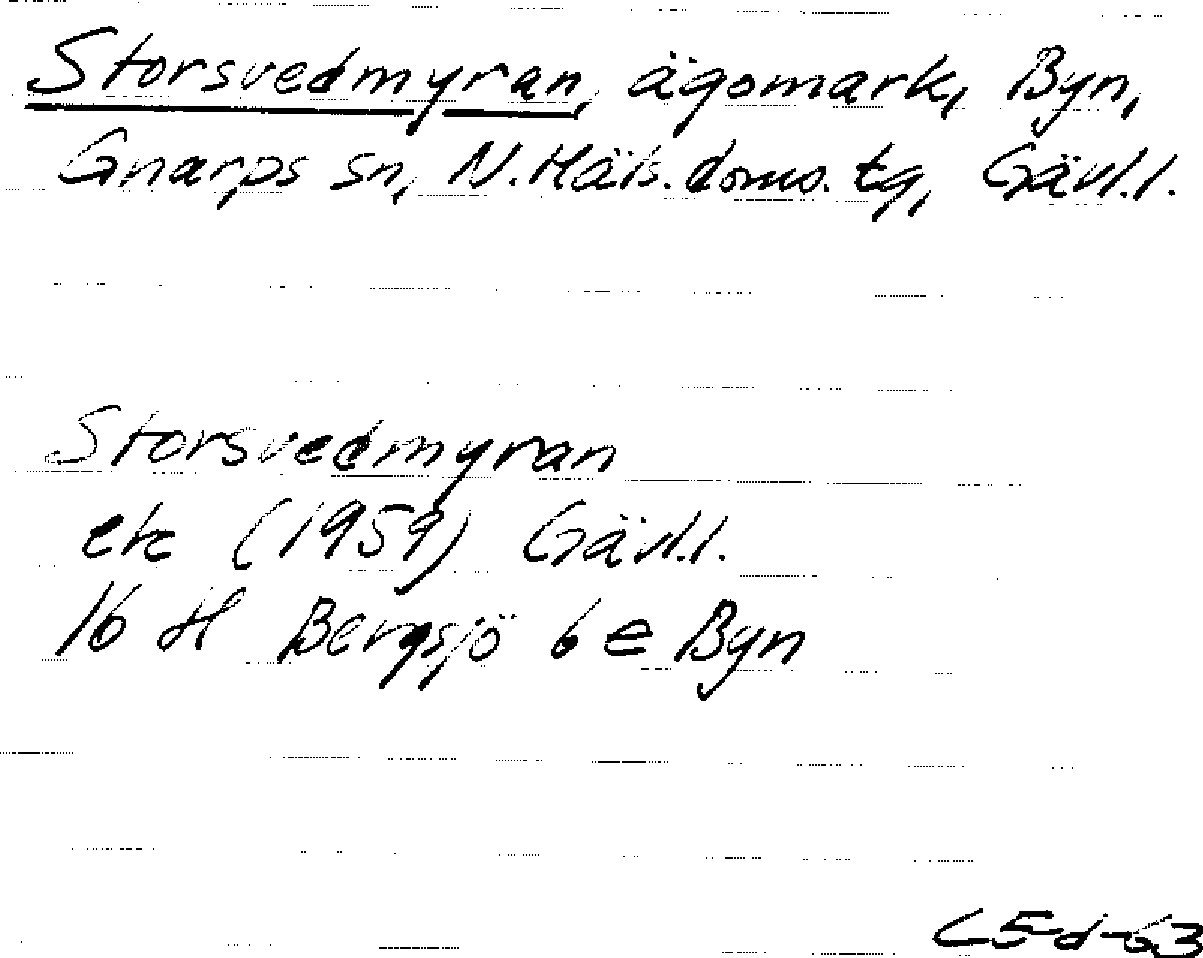 Storsvedmyran, ägomark, Byn,
Gnarps sn, N. Häls. doms. tg, Gävl.l.
Storsvedmyran
ek (1959) Gävl.l.
16 H Bergsjö 6 e Byn